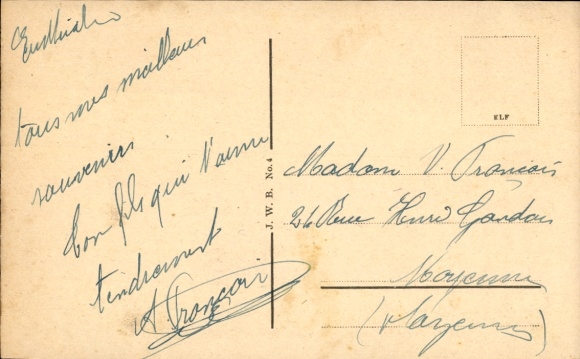 tous mes meilleurs
souvenirs
Ton fils qui t'aime
tendrement
A François
J. W. B. No. 4
ELF
Madame V. François
26 Rue Henri
Mayenne
(Mayenne)